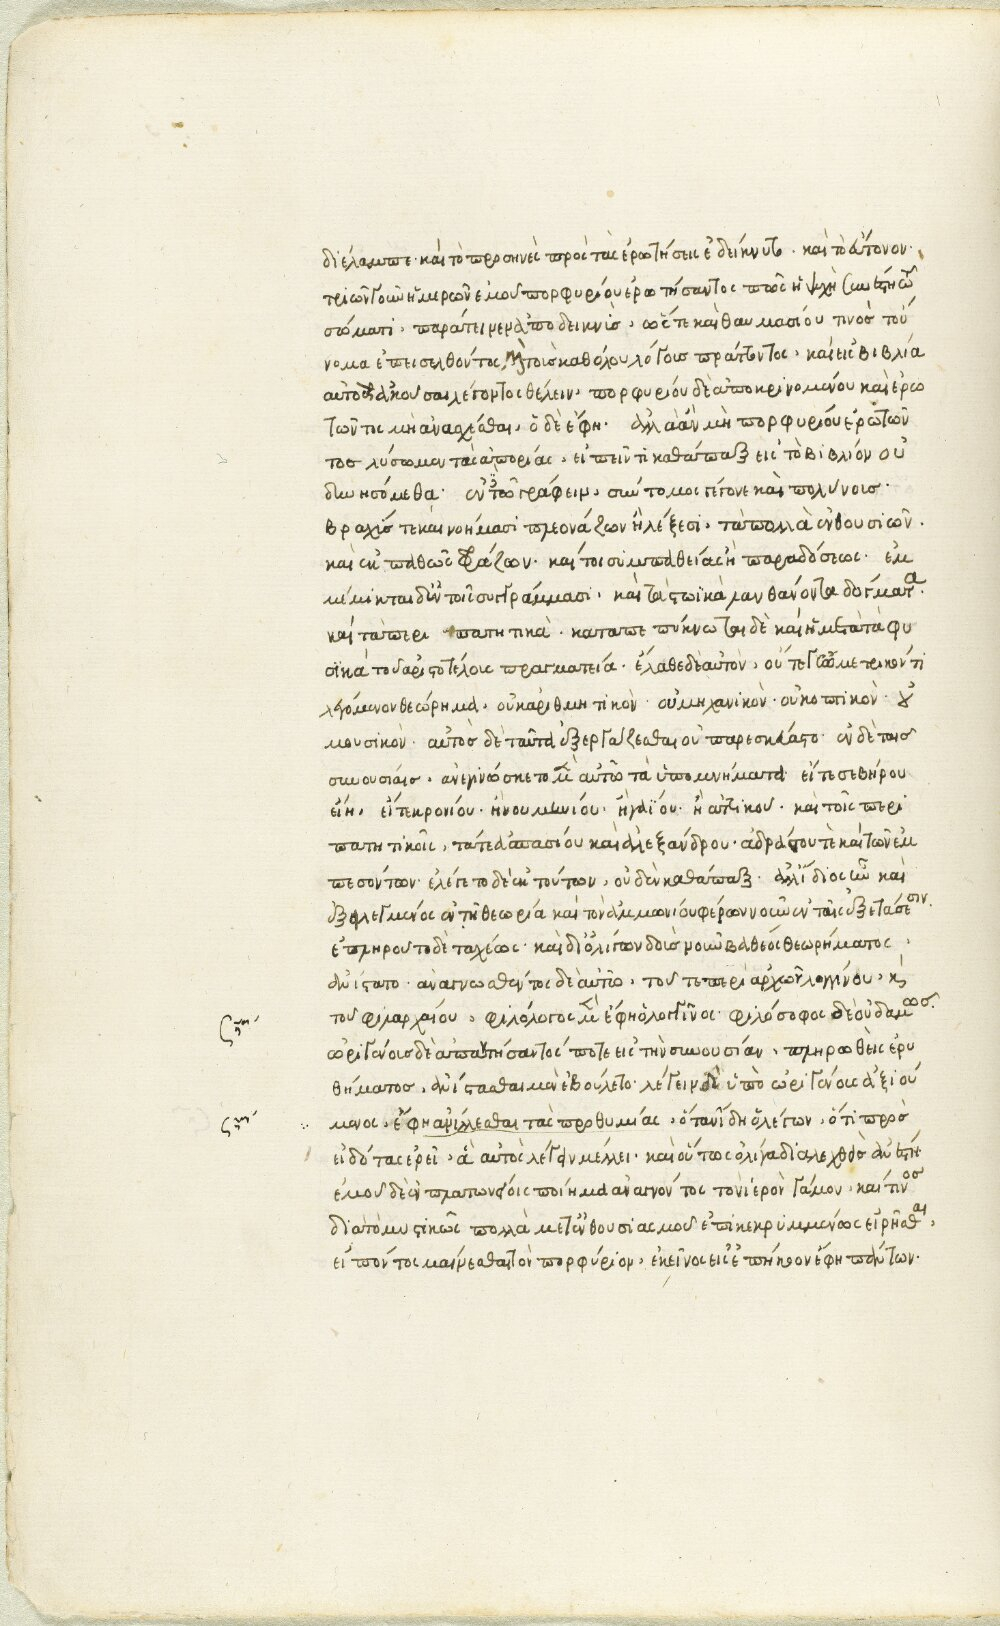 διέλαμπε· καὶ τὸ προσηνὲς πρὸς τὰς ἐρωτήσεις ἐδείκνυτο· καὶ τὸ εὔτονον·
τριῶν γοῦν ἡμερῶν ἐμοῦ πορφυρίου ἐρωτήσαντος πῶς ἡ ψυχὴ σύνεστι τῶ
σώματι, παρέτεινεν ἀποδεικνὺς, ὥστε καὶ θαυμασίου τινὸς τοὔ
νομα ἐπεισελθόντος τοὺς καθόλου λόγους πράττοντος, καὶ εἰς βιβλία
αὐτοῦ ἀκοῦσαι λέγοντος θέλειν, πορφυρίου δὲ ἀποκρινομένου καὶ ἐρω
τῶντος μὴ ἀνασχέσθαι, ὁ δὲ ἔφη· ἀλλὰ ἂν μὴ πορφυρίου ἐρωτῶν
τος λύσωμεν τὰς ἀπορίας, εἰπεῖν τι καθάπαξ εἰς τὸ βιβλίον οὐ
δυνησόμεθα· ἐν τῶ γράφειν, σύντομος γέγονε καὶ πολύνους·
βραχύς τε καὶ νοήμασι πλεονάζων ἢ λέξεσι, τὰ πολλὰ ἐνθουσιῶν·
καὶ ἐκπαθῶς φράζων· καὶ τὸ συμπαθείας ἢ παραδόσεως· ἐμ
μέμικται δ' ἐν τοῖς συγγράμμασι, καὶ τὰ στωικὰ λανθάνοντα δόγματα·
καὶ τὰ περιπατητικὰ· καταπεπύκνωται δὲ καὶ ἡ μετὰ τὰ φυ
σικὰ τοῦ ἀριστοτέλους πραγματεία· ἔλαθε δὲ αὐτὸν, οὔτε γεωμετρικόν τι
λεγόμενον θεώρημα, οὐκ ἀριθμητικὸν· οὐ μηχανικὸν· οὐκ ὀπτικὸν· οὐ
μουσικὸν· αὐτὸς δὲ ταῦτα ἐξεργάζεσθαι οὐ παρεσκεύαστο· ἐν δὲ ταῖς
συνουσίαις, ἀνεγινώσκετο μὲν αὐτῶ τὰ ὑπομνήματα· εἴτε σεβήρου
εἴη, εἴτε κρονίου· ἢ νουμηνίου· ἢ γαΐου· ἢ ἀττικοῦ· καὶ τοῖς περι
πατητικοῖς, τά τε ἀσπασίου καὶ ἀλεξάνδρου· ἀδράστου τε καὶ τῶν ἐμ
πεσόντων· ἐλέγετο δὲ ἐκ τούτων, οὐδὲν καθάπαξ· ἀλλ' ἴδιος ἦν καὶ
ἐξηλλαγμένος ἐν τῆ θεωρία καὶ τὸν ἀμμωνίου φέρων νοῦν ἐν ταῖς ἐξετάσεσιν·
ἐπληροῦτο δὲ ταχέως· καὶ δι' ὀλίγων δοὺς νοῦν βαθέος θεωρήματος,
ἀνίστατο· ἀναγνωσθέντος δὲ αὐτῶ, τοῦ τε περὶ ἀρχῶν λογγίνου, καὶ
τοῦ φιλαρχαίου, φιλόλογος μὲν ἔφη ὁ λογγῖνος· φιλόσοφος δὲ οὐδαμῶς·
ὠριγένους δὲ ἀπαντήσαντός ποτε εἰς τὴν συνουσίαν, πληρωθεὶς ἐρυ
θήματος, ἀνίστασθαι μὲν ἐβούλετο· λέγειν δὲ ὑπὸ ὠριγένους ἀξιού
μενος, ἔφη ἀνίλλεσθαι τὰς προθυμίας, ὅταν ἴδη ὁ λέγων, ὅτι πρὸς
εἰδότας ἐρεῖ, ἃ αὐτὸς λέγειν μέλλει· καὶ οὕτως ὀλίγα διαλεχθεὶς ἀνέστη
ἐμοῦ δὲ ἐν πλατωνείοις ποίημα ἀναγνόντος τὸν ἱερὸν γάμον, καί τινος
διὰ τὸ μυστικῶς πολλὰ μετ' ἐνθουσιασμοῦ ἐπικεκρυμμένως εἰρῆσθαι,
εἰπόντος μαίνεσθαι τὸν πορφύριον, ἐκεῖνος εἰς ἐπήκοον ἔφη πάντων·